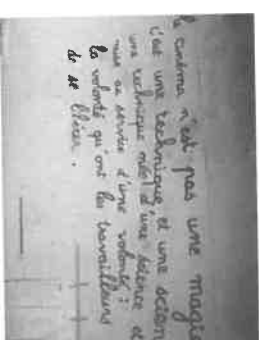 Le cinéma n'est pas une magie
c'est une technique et une scien
une technique née d'une science et
mise au service d'une volonté :
la volonté qu'ont les travailleurs
de se libérer.